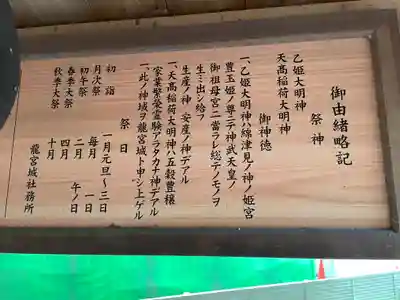 御由緒略記
祭神
乙姫大明神
天高稲荷大明神
御神徳
一、乙姫大明神ハ綿津見ノ神ノ姫宮
豊玉姫ノ尊ニテ神武天皇ノ
御祖母宮ニ當ラレ総テノモノヲ
生ミ出シ給フ
生産ノ神 安産ノ神デアル
一、天高稲荷大明神ハ五穀豊穣
家業繁榮霊験アラタカナ神デアル
一、此ノ神域ヲ龍宮城ト申シ上ゲル
祭日
初詣 一月元旦~三日
月次祭 毎月 一日
初午祭 二月 午ノ日
春季大祭 四月
秋季大祭 十月
龍宮城社務所